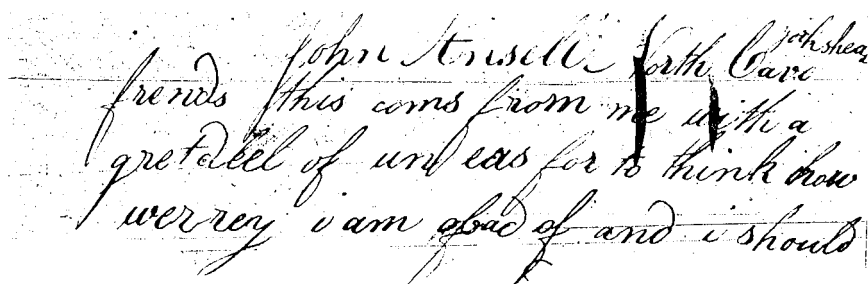 John Ansell North Cave yorkshear
frends this coms from me with a
gret deel of un eas for to think how
werrey i am of bad of and i should